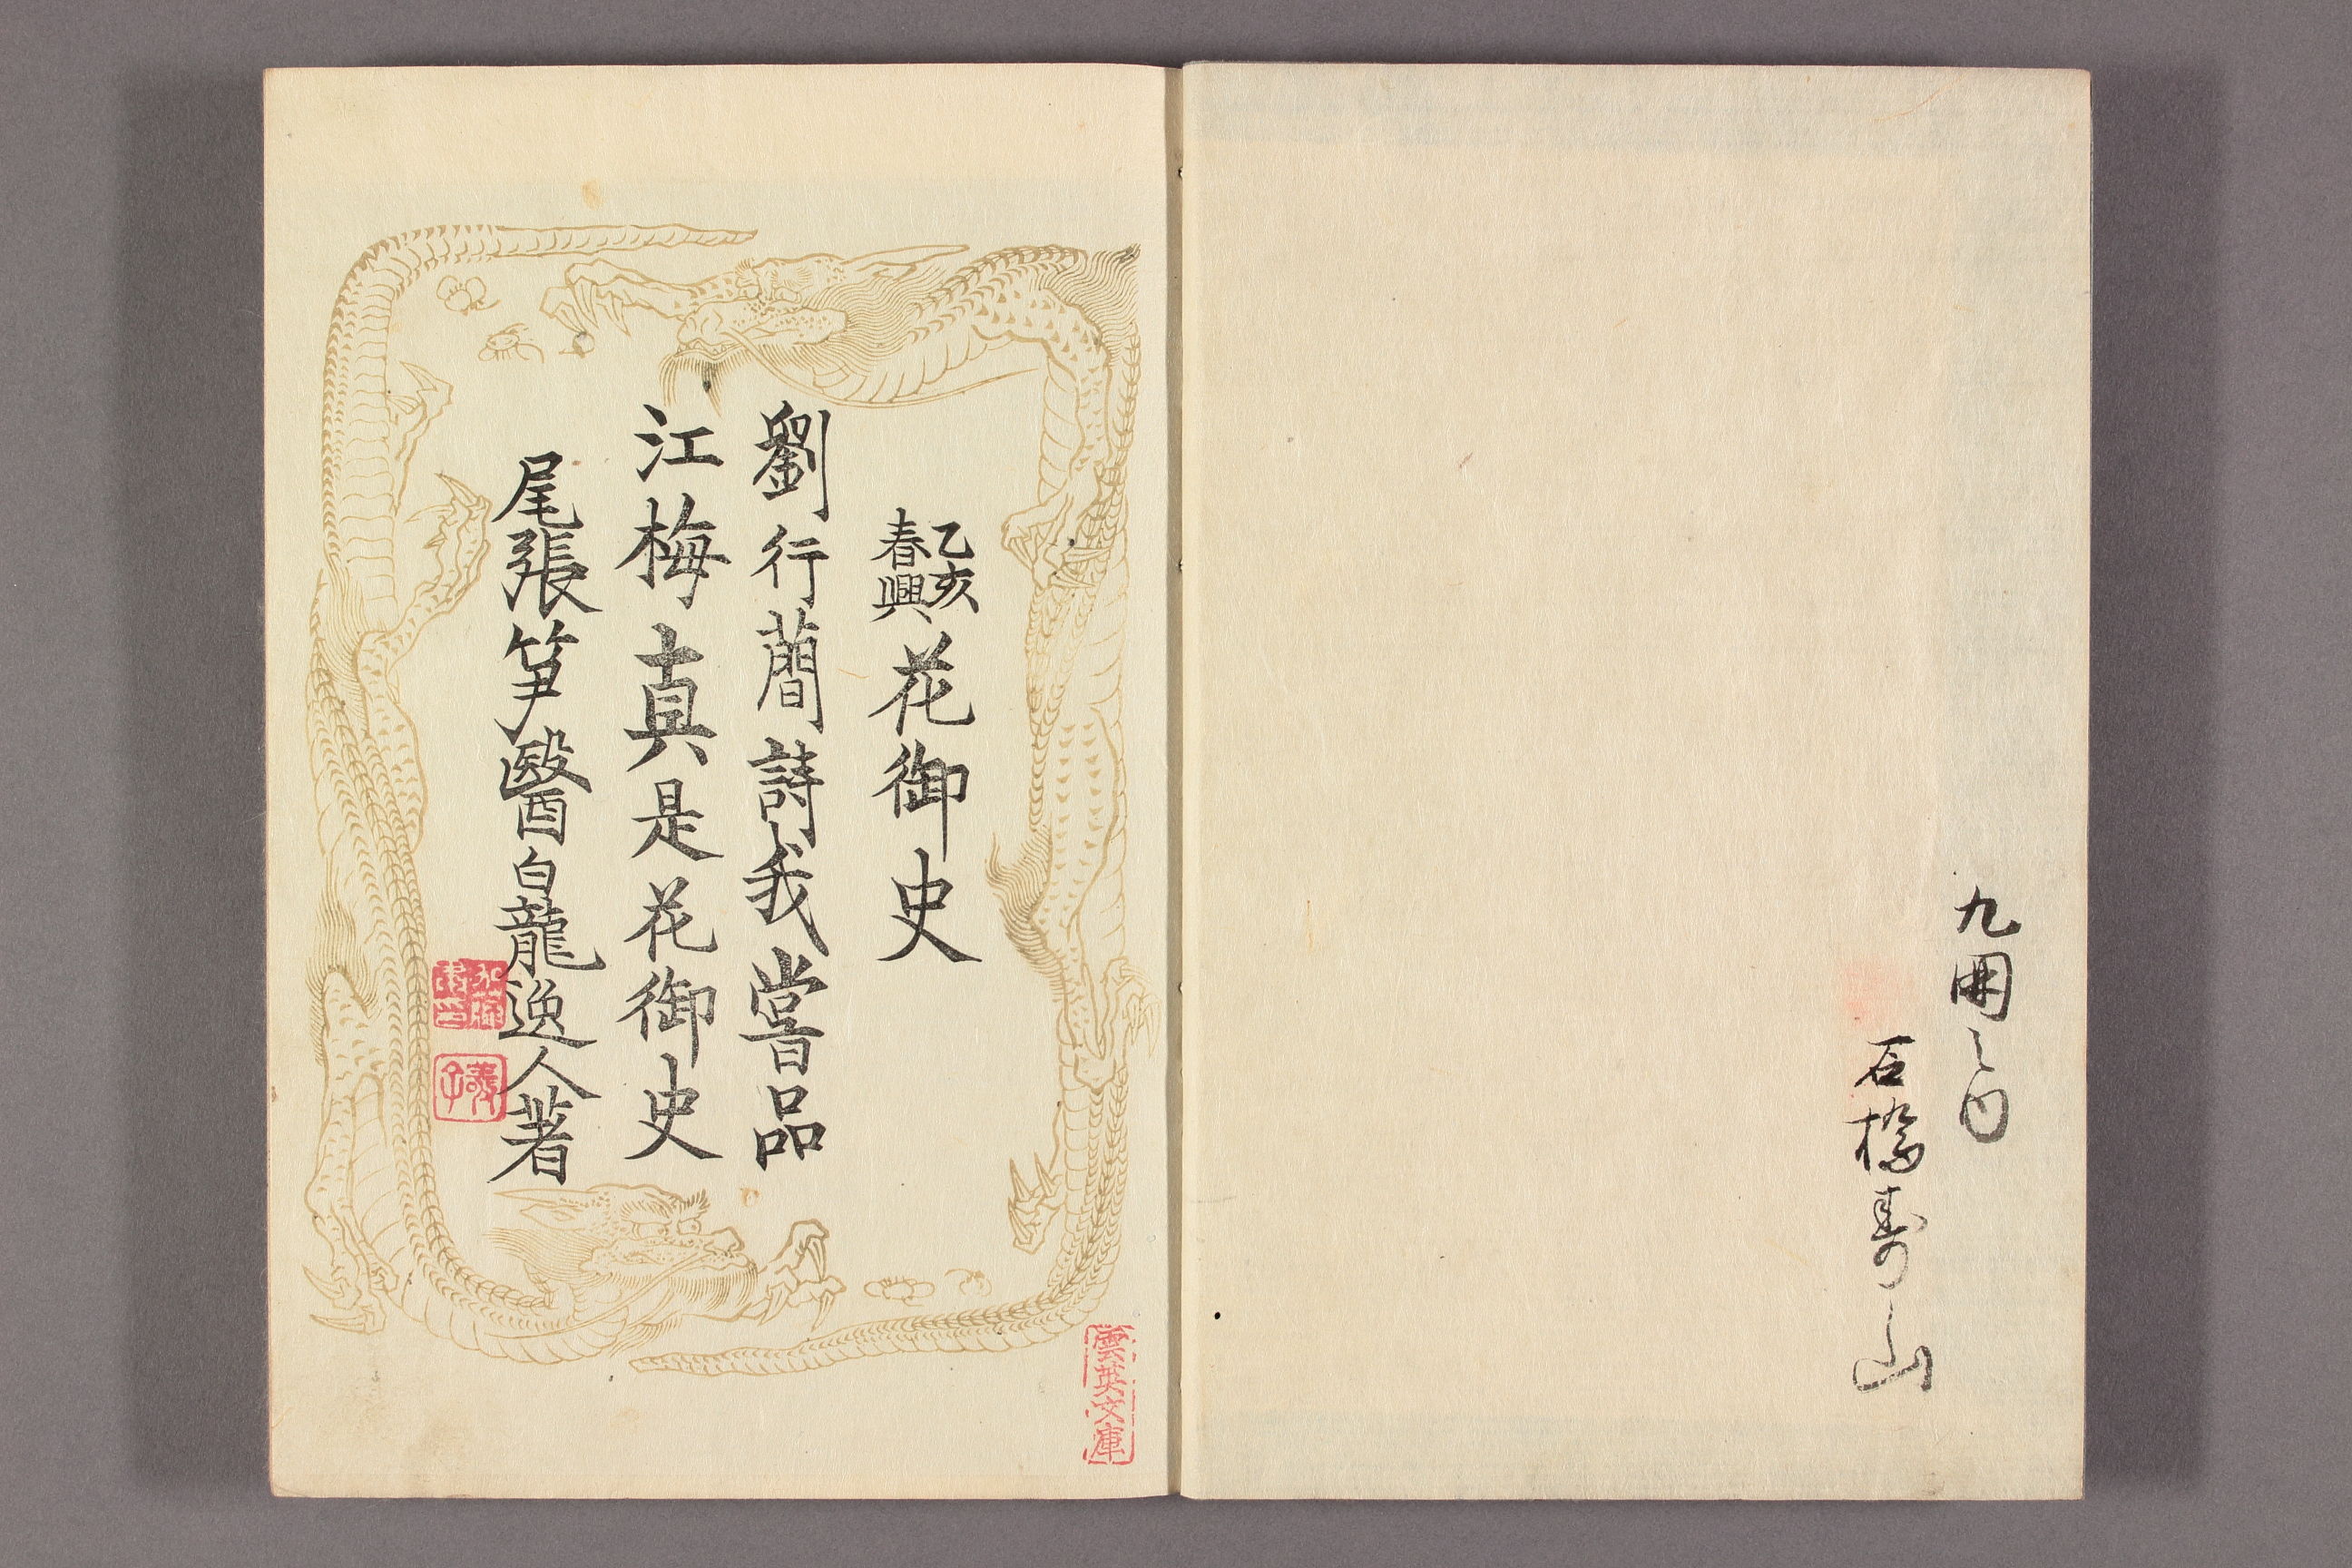 九冊之内
石橋寿山
乙亥
春興
花御史
劉行蕳詩我嘗品
江梅真是花御史
尾張笋醫白龍逸人著
雲英文庫